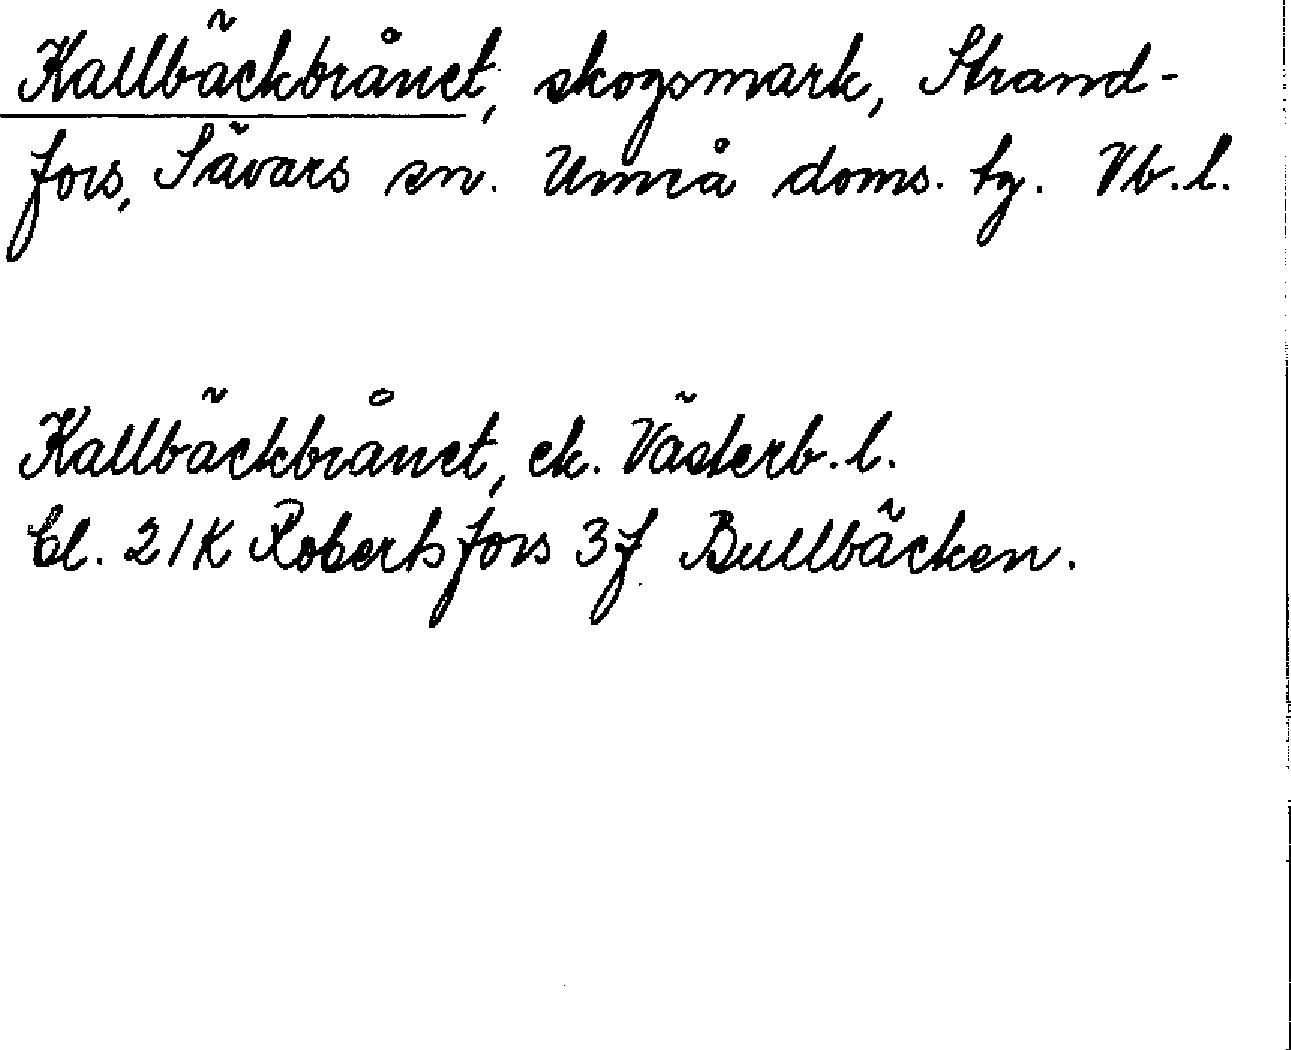 Kallbäckbrånet, skogsmark, Strand-
fors, Sävars sn. Umeå doms. tg. Vb.l.
Kallbäckbrånet, ek. Västerb.l.
Bl. 21K Robertsfors 3f Bullbäcken.